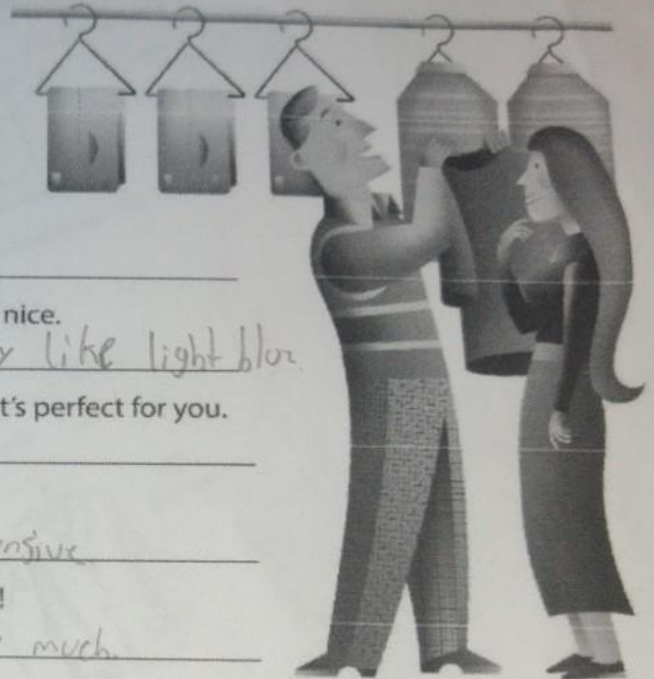 nice.
like light blue
t's perfect for you.
ensive
!
much.